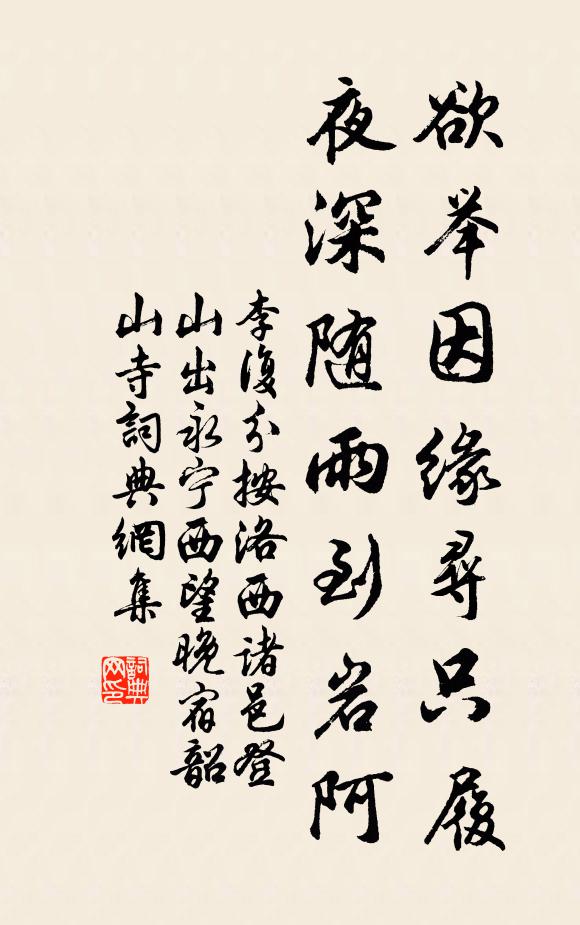 欲举因缘尋只履
夜深随雨到岩阿
李復分按洛西諸邑登
山出永宁西望晚宿韶
山寺詞典網集
詞典网印